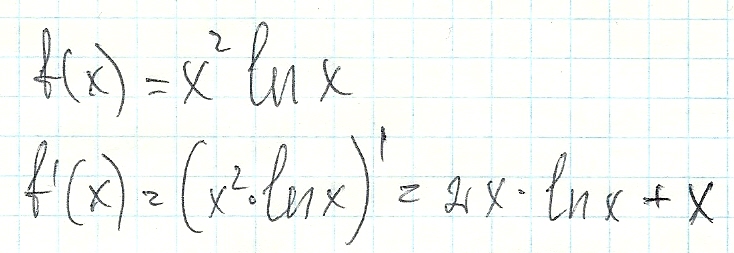 f(x) = x² ln x
f'(x) = (x² · ln x)' = 2x · ln x + x